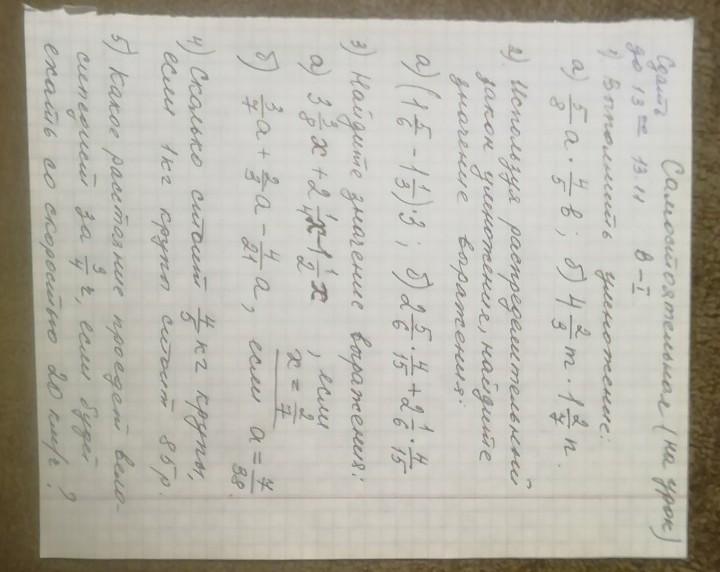 Самостоятельная (на урок)
Сдать
до 13 00 13.11 В-I
1) Выполнить умножение:
а) 5/8 a · 4/5 b; б) 4 2/3 m · 1 2/7 n.
2) Используя распределительный
закон умножения, найдите
значение выражения:
а) (1 5/6 - 1 1/3) · 3; б) 2 5/6 · 4/15 + 2 1/6 · 4/15
3) Найдите значение выражения:
а) 3 3/8 x + 2 1/4 x - 1 1/2 x, если
x = 2/7
б) 3/7 a + 2/3 a - 4/21 a, если a = 7/38.
4) Сколько стоит 4/5 кг крупы,
если 1 кг крупы стоит 85 р.
5) Какое расстояние проедет вело-
сипедист за 3/4 г, если будет
ехать со скоростью 20 км/г?